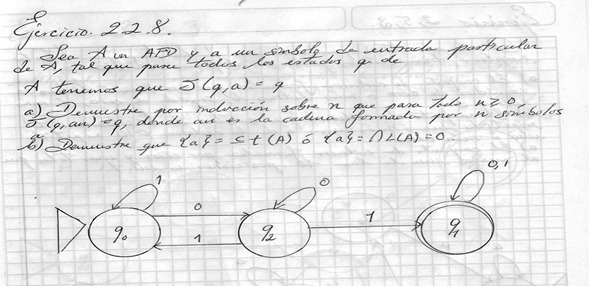 Ejercicio. 2.2.8.
Sea A un AFD y a un simbolo de entrada particular
de A, tal que para todos los estados q de
A tenemos que δ(q,a) = q
a) Demuestre por inducción sobre n que para todo n≥0,
δ(q,an) = q, donde an es la cadena formada por n simbolos
a.
b) Demuestre que {a}* ⊆ L(A) ó {a}* ∩ L(A) = 0.
1 0 0,1
q0 0 q2 1 q1
1